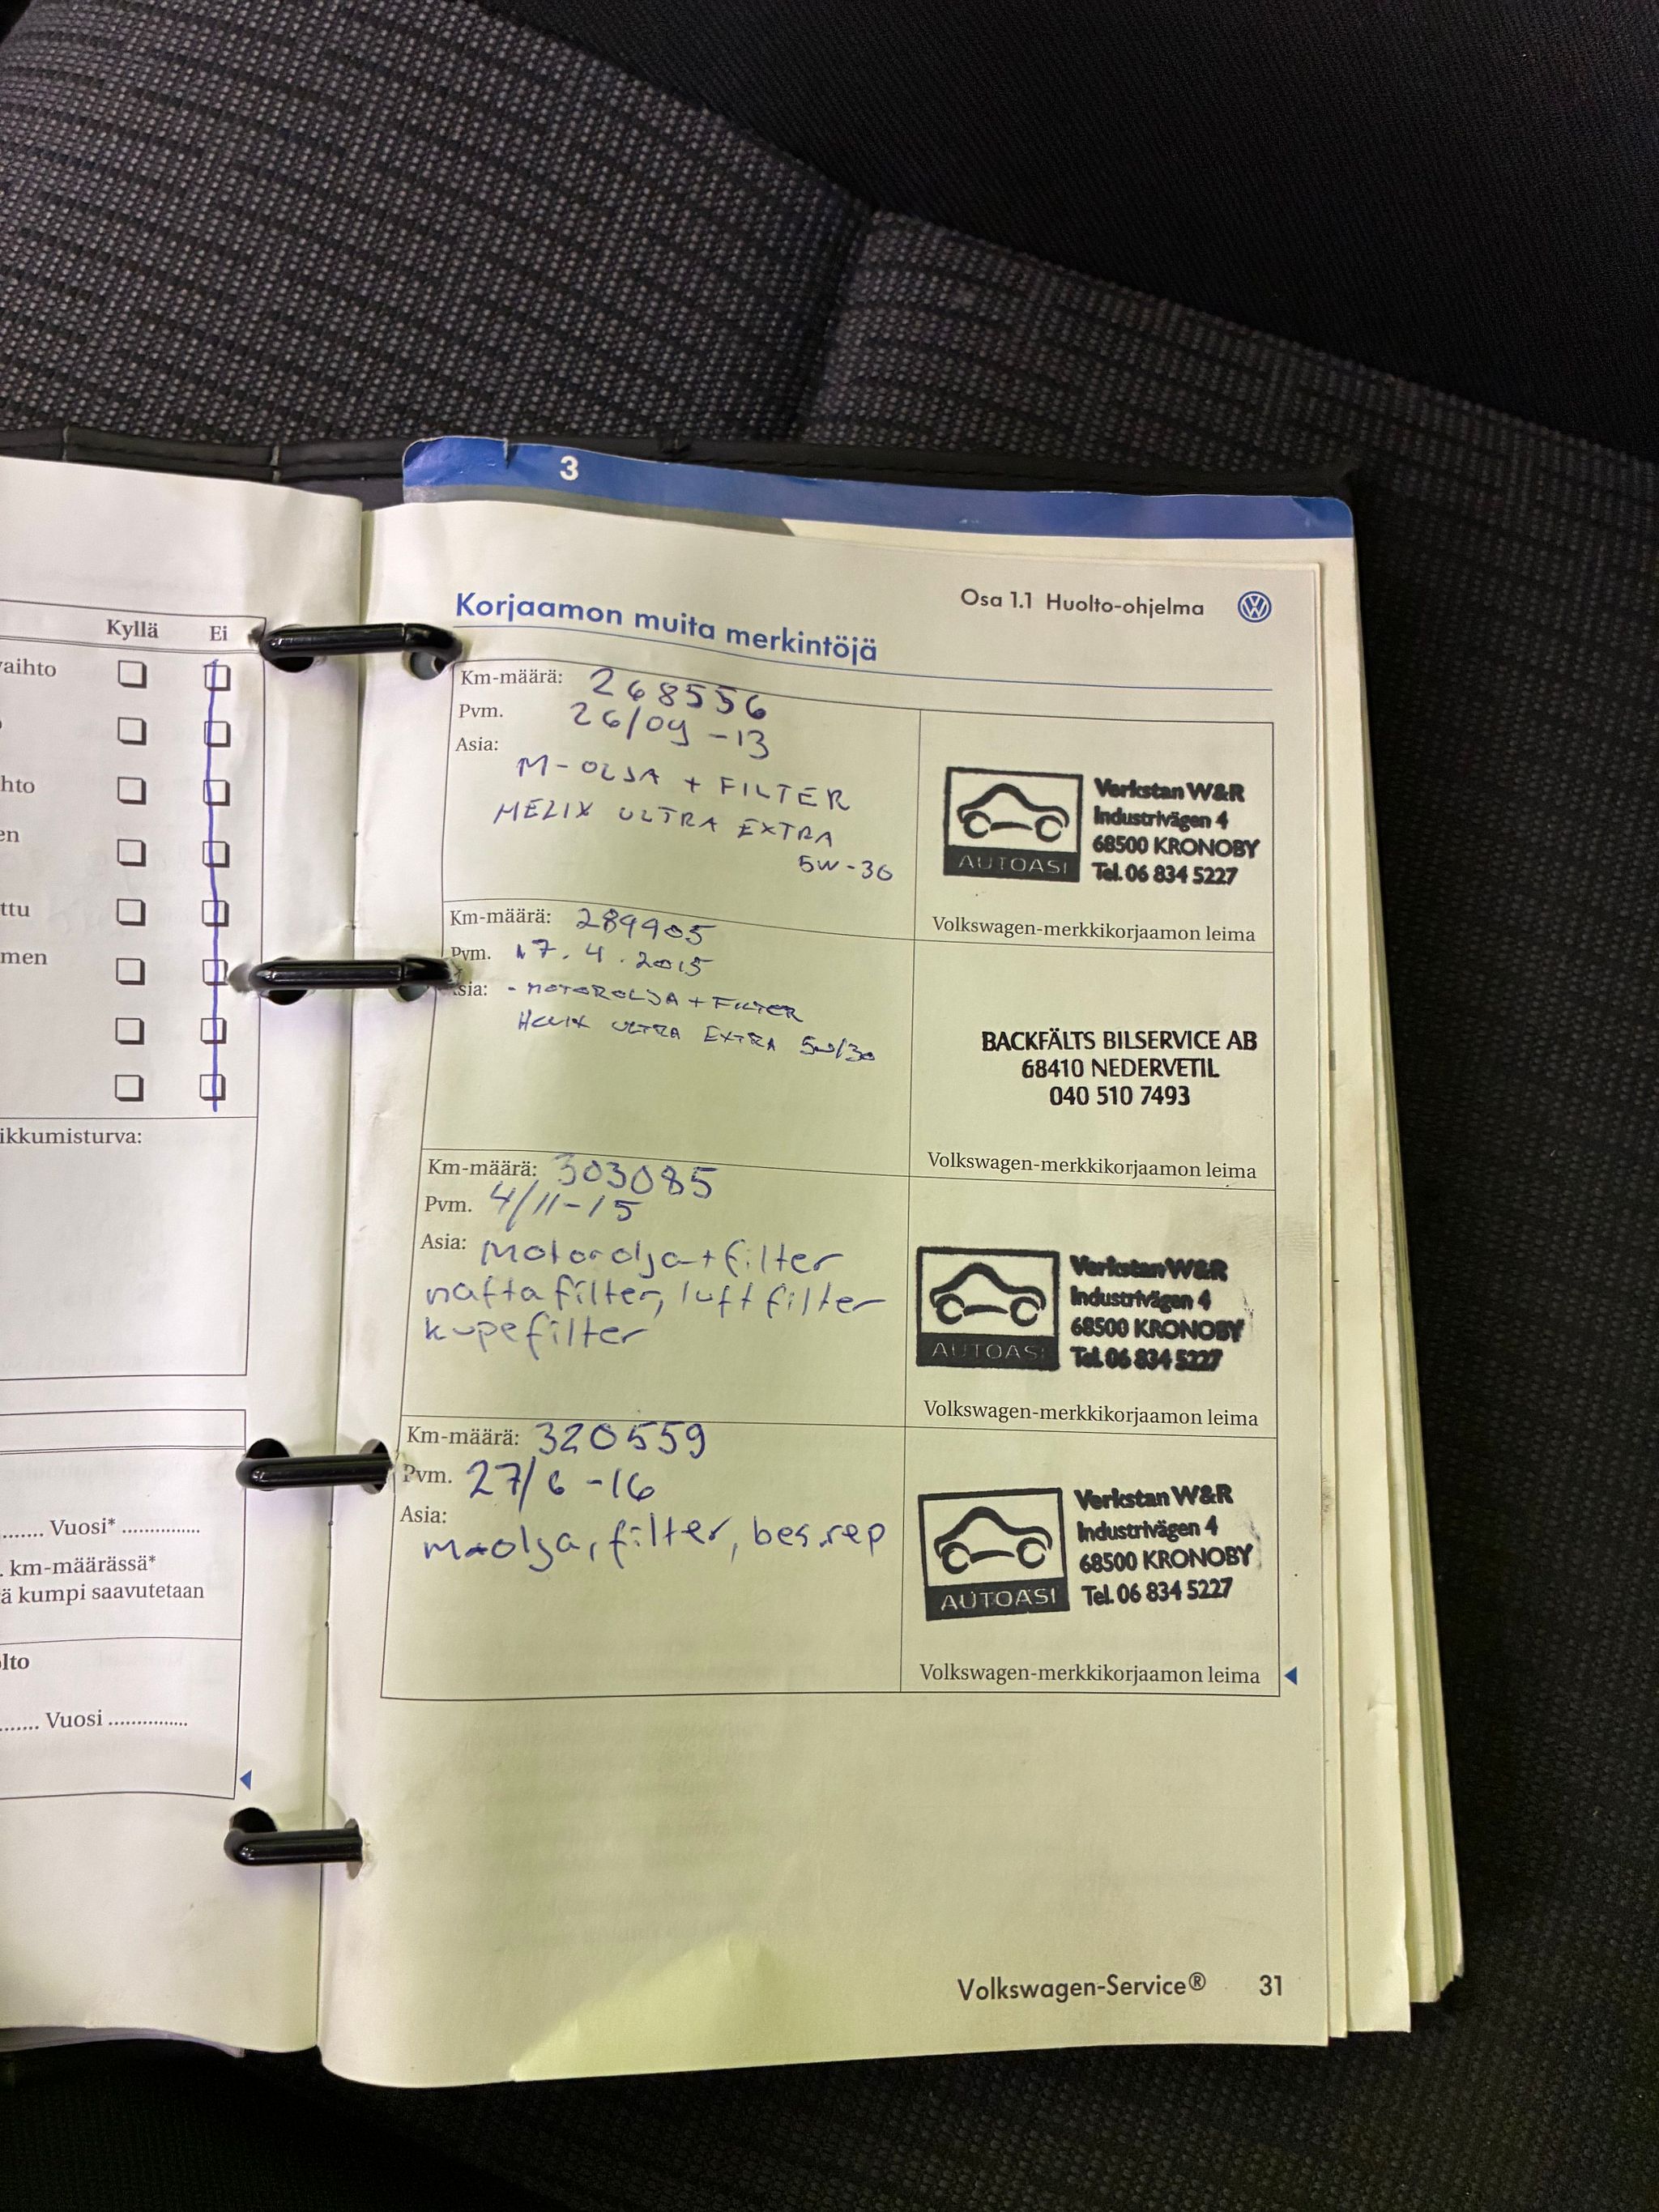 3
Kyllä Ei
aihto
hto
en
ttu
men
ikkumisturva:
Vuosi*
km-määrässä*
ä kumpi saavutetaan
lto
Vuosi
Osa 1.1 Huolto-ohjelma
Korjaamon muita merkintöjä
Km-määrä: 268556
Pvm. 26/09 -13
Asia:
M-OLJA + FILTER
HELIX ULTRA EXTRA
5W-30
AUTOASI
Verkstan W&R
Industrivägen 4
68500 KRONOBY
Tel. 06 834 5227
Volkswagen-merkkikorjaamon leima
Km-määrä: 289905
Pvm. 17.4.2015
sia: - MOTOROLJA + FILTER
HELIX ULTRA EXTRA 5W/30
BACKFÄLTS BILSERVICE AB
68410 NEDERVETIL
040 510 7493
Volkswagen-merkkikorjaamon leima
Km-määrä: 303085
Pvm. 4/11-15
Asia: Motorolja+filter
naftafilter, luftfilter
kupefilter
AUTOASI
Verkstan W&R
Industrivägen 4
68500 KRONOBY
Tel. 06 834 5227
Volkswagen-merkkikorjaamon leima
Km-määrä: 320559
Pvm. 27/6 -16
Asia:
m-olja, filter, bes.rep
AUTOASI
Verkstan W&R
Industrivägen 4
68500 KRONOBY
Tel. 06 834 5227
Volkswagen-merkkikorjaamon leima
Volkswagen-Service® 31